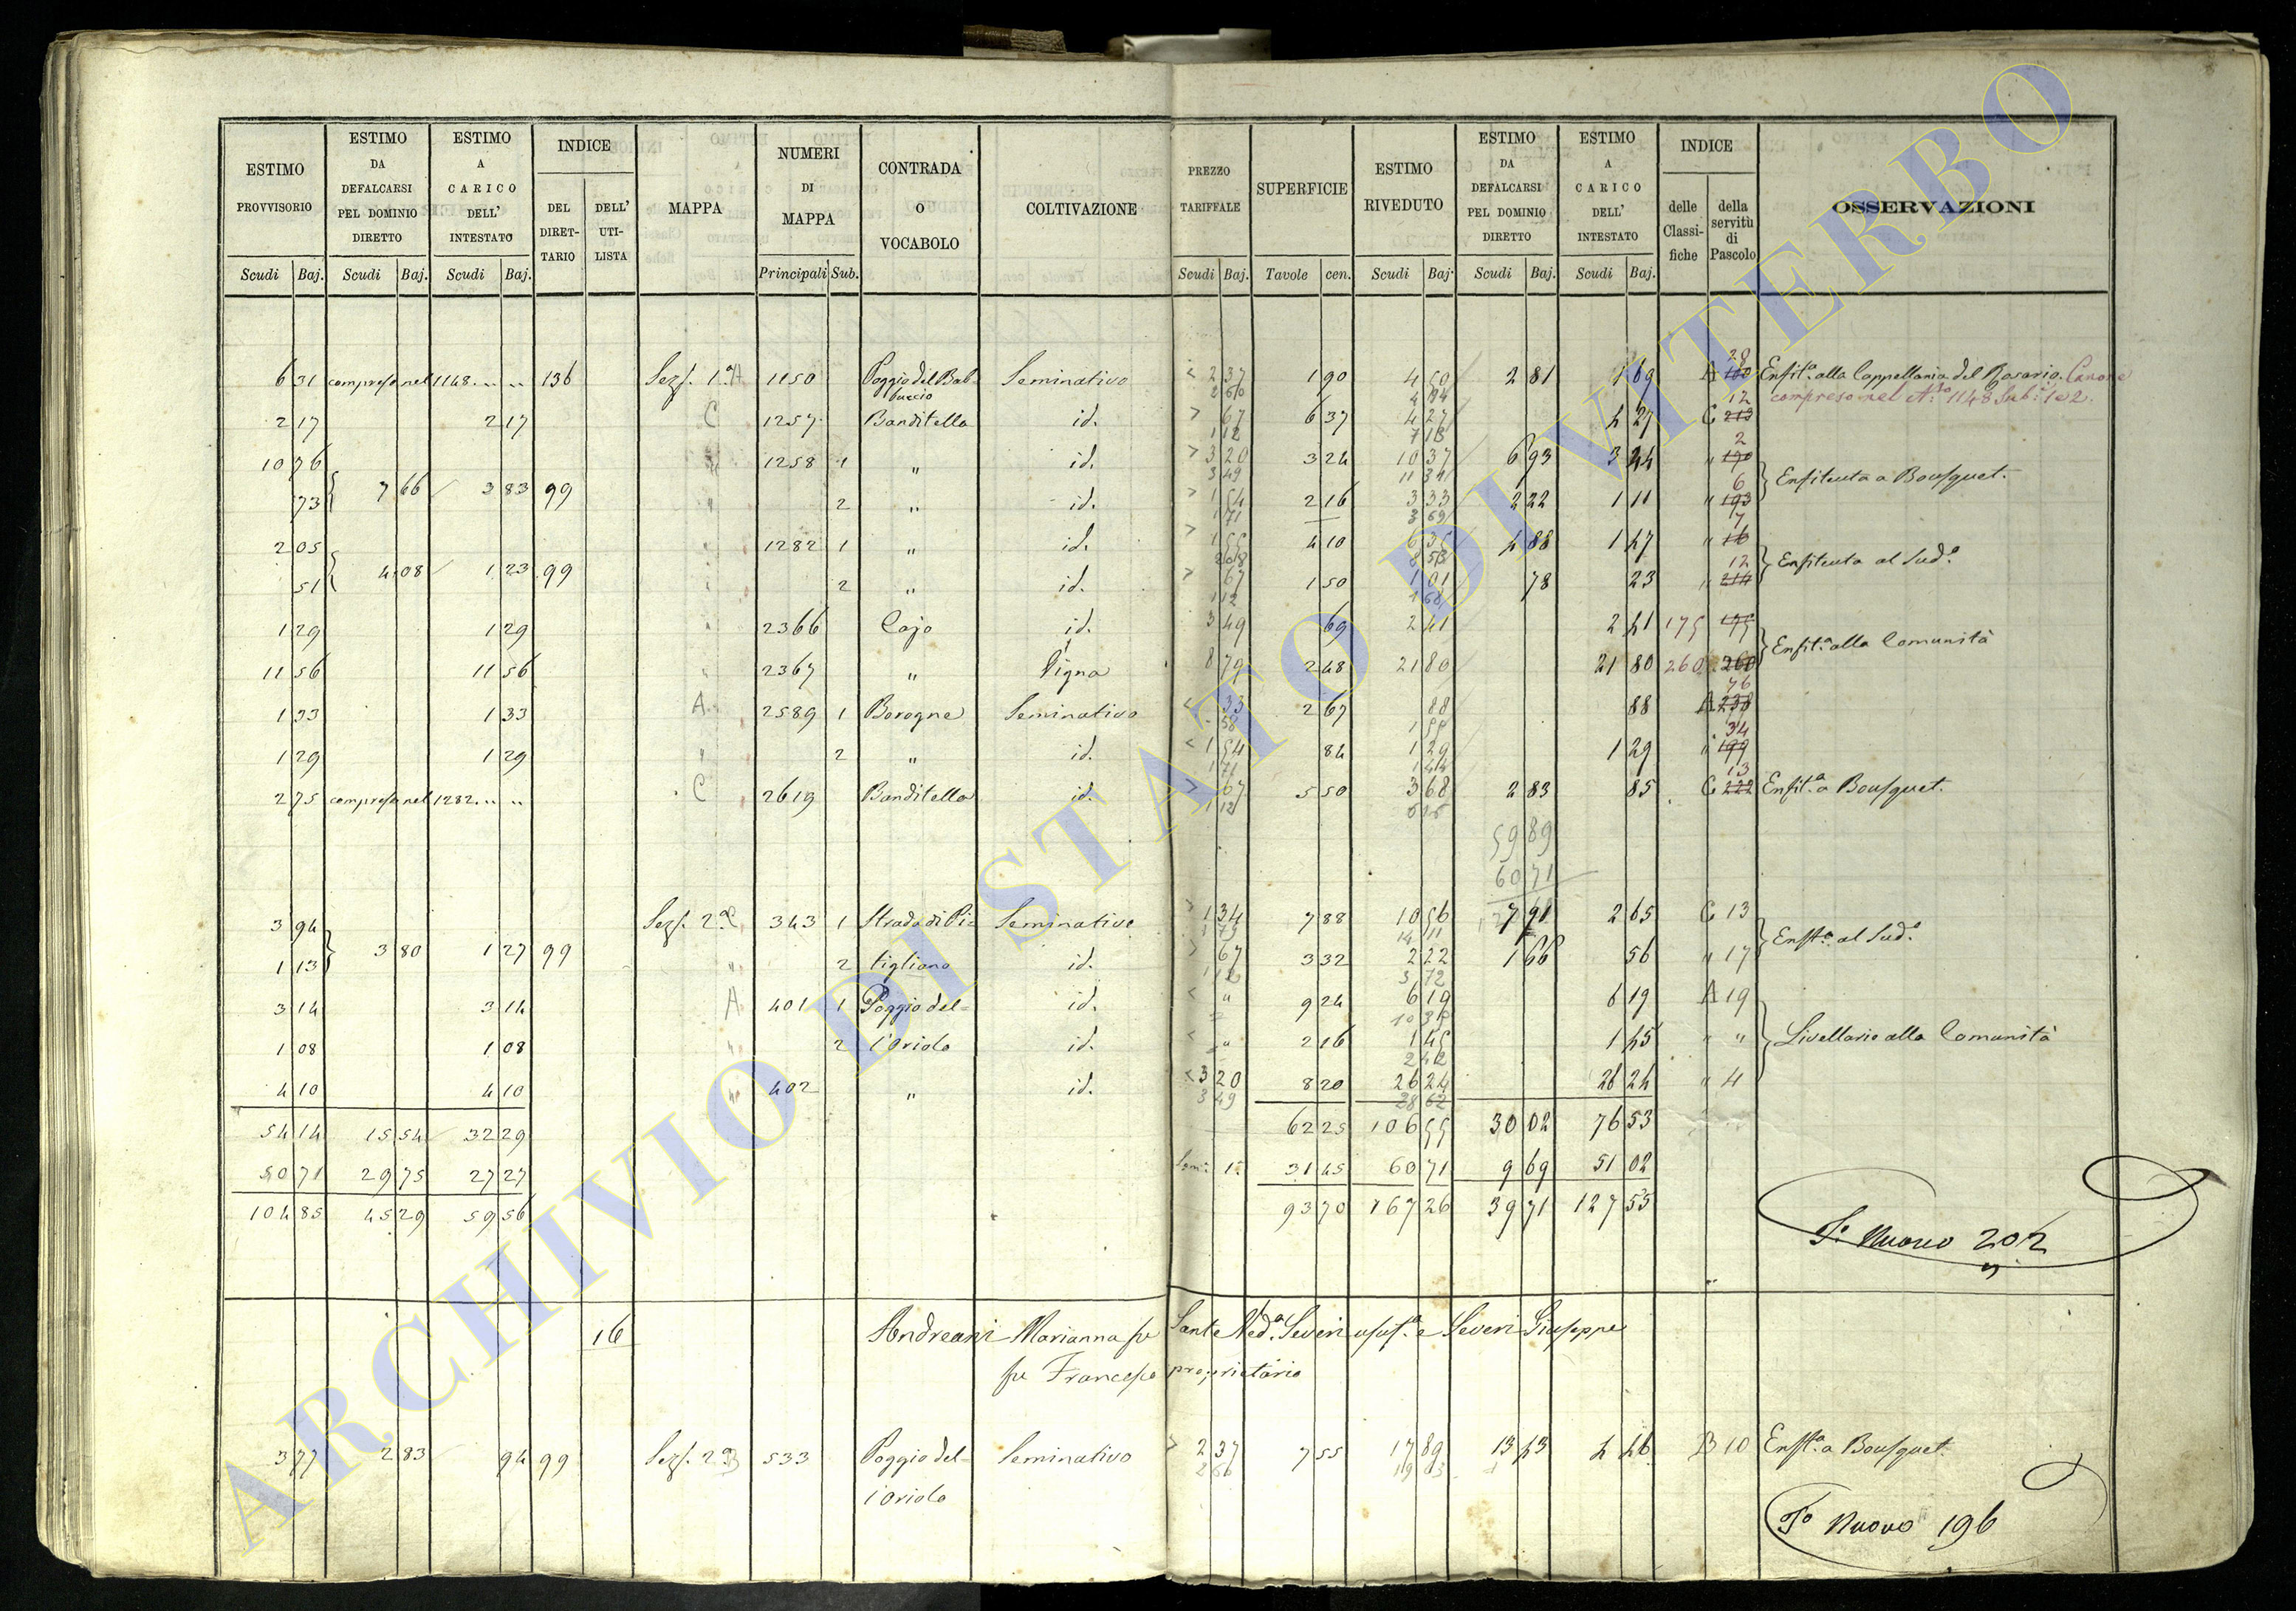 ESTIMO PROVVISORIO | ESTIMO DA DEFALCARSI PEL DOMINIO DIRETTO | ESTIMO A CARICO DELL' INTESTATO | INDICE | MAPPA | NUMERI DI MAPPA | CONTRADA O VOCABOLO | COLTIVAZIONE | PREZZO TARIFFALE | SUPERFICIE | ESTIMO RIVEDUTO | ESTIMO DA DEFALCARSI PEL DOMINIO DIRETTO | ESTIMO A CARICO DELL' INTESTATO | INDICE | OSSERVAZIONI
DEL DIRET-TARIO | DELL' UTI-LISTA | delle Classi-fiche | della servitù di Pascolo
Scudi Baj. | Scudi Baj. | Scudi Baj. | Principali Sub. | Scudi Baj. | Tavole cen. | Scudi Baj. | Scudi Baj. | Scudi Baj.
6 31 | compreso nel 1148 | 136 | Sez. 1ª A | 1150 | Poggio del Bab- | Seminativo | 2 37 | 1 90 | 4 50 | 2 81 | 1 69 | A | Enfit.ª alla Cappellania del Rosario. Canone
buccio | compreso nel N.° 1148 Sub. 1 e 2.
2 17 | 2 17 | C | 1257 | Banditella | id. | 67 | 6 37 | 4 27 | 4 27 | C 12
10 76 | 1258 | 1 | " | id. | 3 20 | 3 24 | 10 37 | 6 93 | 3 44 | " 2
7 66 | 3 83 | 99 | Enfiteuta a Bousquet.
73 | " | 2 | " | id. | 1 54 | 2 16 | 3 33 | 2 22 | 1 11 | " 6
2 05 | " | 1282 | 1 | " | id. | 1 55 | 4 10 | 6 35 | 4 88 | 1 47 | " 7
4 08 | 1 23 | 99 | Enfiteuta al Sud.°
51 | " | 2 | " | id. | 67 | 1 50 | 1 01 | 78 | 23 | " 12
1 29 | 1 29 | " | 2366 | Cajo | id. | 3 49 | 69 | 2 41 | 2 41 | 175
Enfit.ª alla Comunità
11 56 | 11 56 | " | 2367 | " | Vigna | 8 79 | 2 48 | 21 80 | 21 80 | 260 | 260
1 33 | 1 33 | A | 2589 | 1 | Borogne | Seminativo | 33 | 2 67 | 88 | 88 | A 76
1 29 | 1 29 | " | 2 | " | id. | 1 54 | 84 | 1 29 | 1 29 | " 34
2 75 | compreso nel 1282 | C | 2619 | Banditella | id. | 67 | 5 50 | 3 68 | 2 83 | 85 | C 13 | Enfit.ª a Bousquet.
59 89
60 71
3 94 | Sez. 2ª C | 343 | 1 | Strada di Pi- | Seminativo | 1 34 | 7 88 | 10 56 | 7 91 | 2 65 | C 13
3 80 | 1 27 | 99 | Enft.ª al Sud.°
1 13 | " | 2 | tigliano | id. | 67 | 3 32 | 2 22 | 1 66 | 56 | " 17
3 14 | 3 14 | A | 401 | 1 | Poggio del- | id. | " | 9 24 | 6 19 | 6 19 | A 19
1 08 | 1 08 | " | 2 | l'Oriolo | id. | " | 2 16 | 1 45 | 1 45 | " " | Livellario alla Comunità
4 10 | 4 10 | " | 402 | " | id. | 3 20 | 8 20 | 26 24 | 26 24 | " 4
54 14 | 15 54 | 32 29 | 62 25 | 106 55 | 30 02 | 76 53
50 71 | 29 75 | 27 27 | 31 45 | 60 71 | 9 69 | 51 02
104 85 | 45 29 | 59 56 | 93 70 | 167 26 | 39 71 | 127 55
F.° Nuovo 202
16 | Andreani Marianna fu Sante Ved.ª Severi usuf.ª e Severi Giuseppe
fu Francesco proprietario
3 77 | 2 83 | 94 | 99 | Sez. 2ª B | 533 | Poggio del- | Seminativo | 2 37 | 7 55 | 17 89 | 13 43 | 4 46 | B 10 | Enft.ª a Bousquet.
l'Oriolo
F.° Nuovo 196
ARCHIVIO DI STATO DI VITERBO